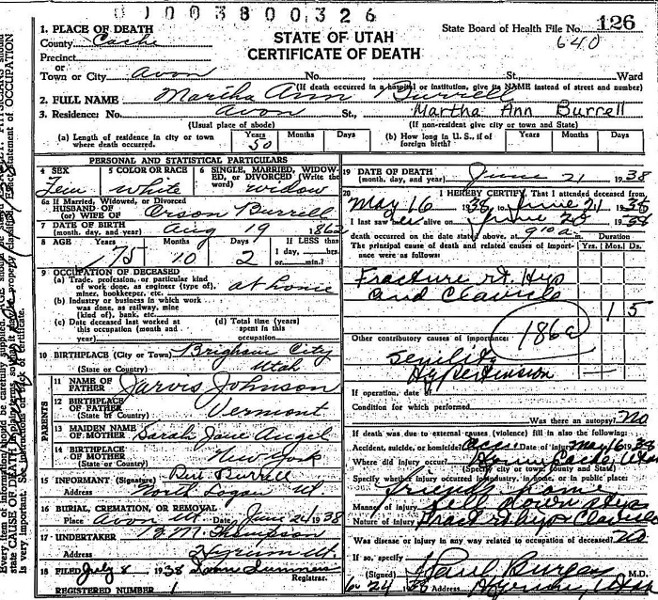 01003800326
1. PLACE OF DEATH
County Cache
Precinct
or
Town or City Avon No. St., Ward
STATE OF UTAH
CERTIFICATE OF DEATH
State Board of Health File No. 126
640
(If death occurred in a hospital or institution, give its NAME instead of street and number)
2. FULL NAME Martha Ann Burrell
3. Residence: No. Avon St., Martha Ann Burrell
(Usual place of abode) (If non-resident give city or town and State)
(a) Length of residence in city or town where death occurred. Years 50 Months Days
(b) How long in U. S., if of foreign birth? Years Months Days
PERSONAL AND STATISTICAL PARTICULARS
4 SEX Fem
5 COLOR OR RACE white
6 SINGLE, MARRIED, WIDOWED, or DIVORCED (Write the word) widow
6a If Married, Widowed, or Divorced
HUSBAND OF
(or) WIFE OF Orson Burrell
7 DATE OF BIRTH
(month, day, and year) Aug 19 1862
8 AGE Years 75 Months 10 Days 2 If LESS than
1 day, hrs.
or min.
9 OCCUPATION OF DECEASED
(a) Trade, profession, or particular kind of work done, as engineer (type of), miner, bookkeeper, etc. at home
(b) Industry or business in which work was done, as railway, mine (kind of), bank, etc.
(c) Date deceased last worked at this occupation (month and year)
(d) Total time (years) spent in this occupation
10 BIRTHPLACE (City or Town) Brigham City
(State or Country) Utah
PARENTS
11 NAME OF FATHER Jarvis Johnson
12 BIRTHPLACE OF FATHER Vermont
(State or Country)
13 MAIDEN NAME OF MOTHER Sarah Jane Angel
14 BIRTHPLACE OF MOTHER New York
(State or Country)
15 INFORMANT (Signature) Burrell
Address North Logan Ut
16 BURIAL, CREMATION, OR REMOVAL
Place Avon Ut. Date June 24 1938
17 UNDERTAKER Thompson
Address Hyrum Ut.
18 FILED July 8 1938
Registrar.
REGISTERED NUMBER 1
19 DATE OF DEATH
(month, day, and year) June 21 1938
20 I HEREBY CERTIFY, That I attended deceased from
May 16 1938, to June 21 1938
I last saw her alive on June 20 1938
death occurred on the date stated above, at 9:10 a m.
The principal cause of death and related causes of importance were as follows:
Duration
Yrs. Mos. Ds.
Fracture rt. Hip
and Clavicle 1 5
186a
Other contributory causes of importance:
Senility
Hypertension
If operation, date of
Condition for which performed
Was there an autopsy? No
If death was due to external causes (violence) fill in also the following:
Accident, suicide, or homicide? Acc. Date of injury May 16 1938
Where did injury occur?
(Specify city or town, county and State)
Specify whether injury occurred in industry, in home, or in public place:
Manner of injury Fell down steps
Nature of injury Fract rt hip & Clavicle
Was disease or injury in any way related to occupation of deceased? No
If so, specify
(Signed) Paul Burgess M.D.
6/24 38 Address Utah